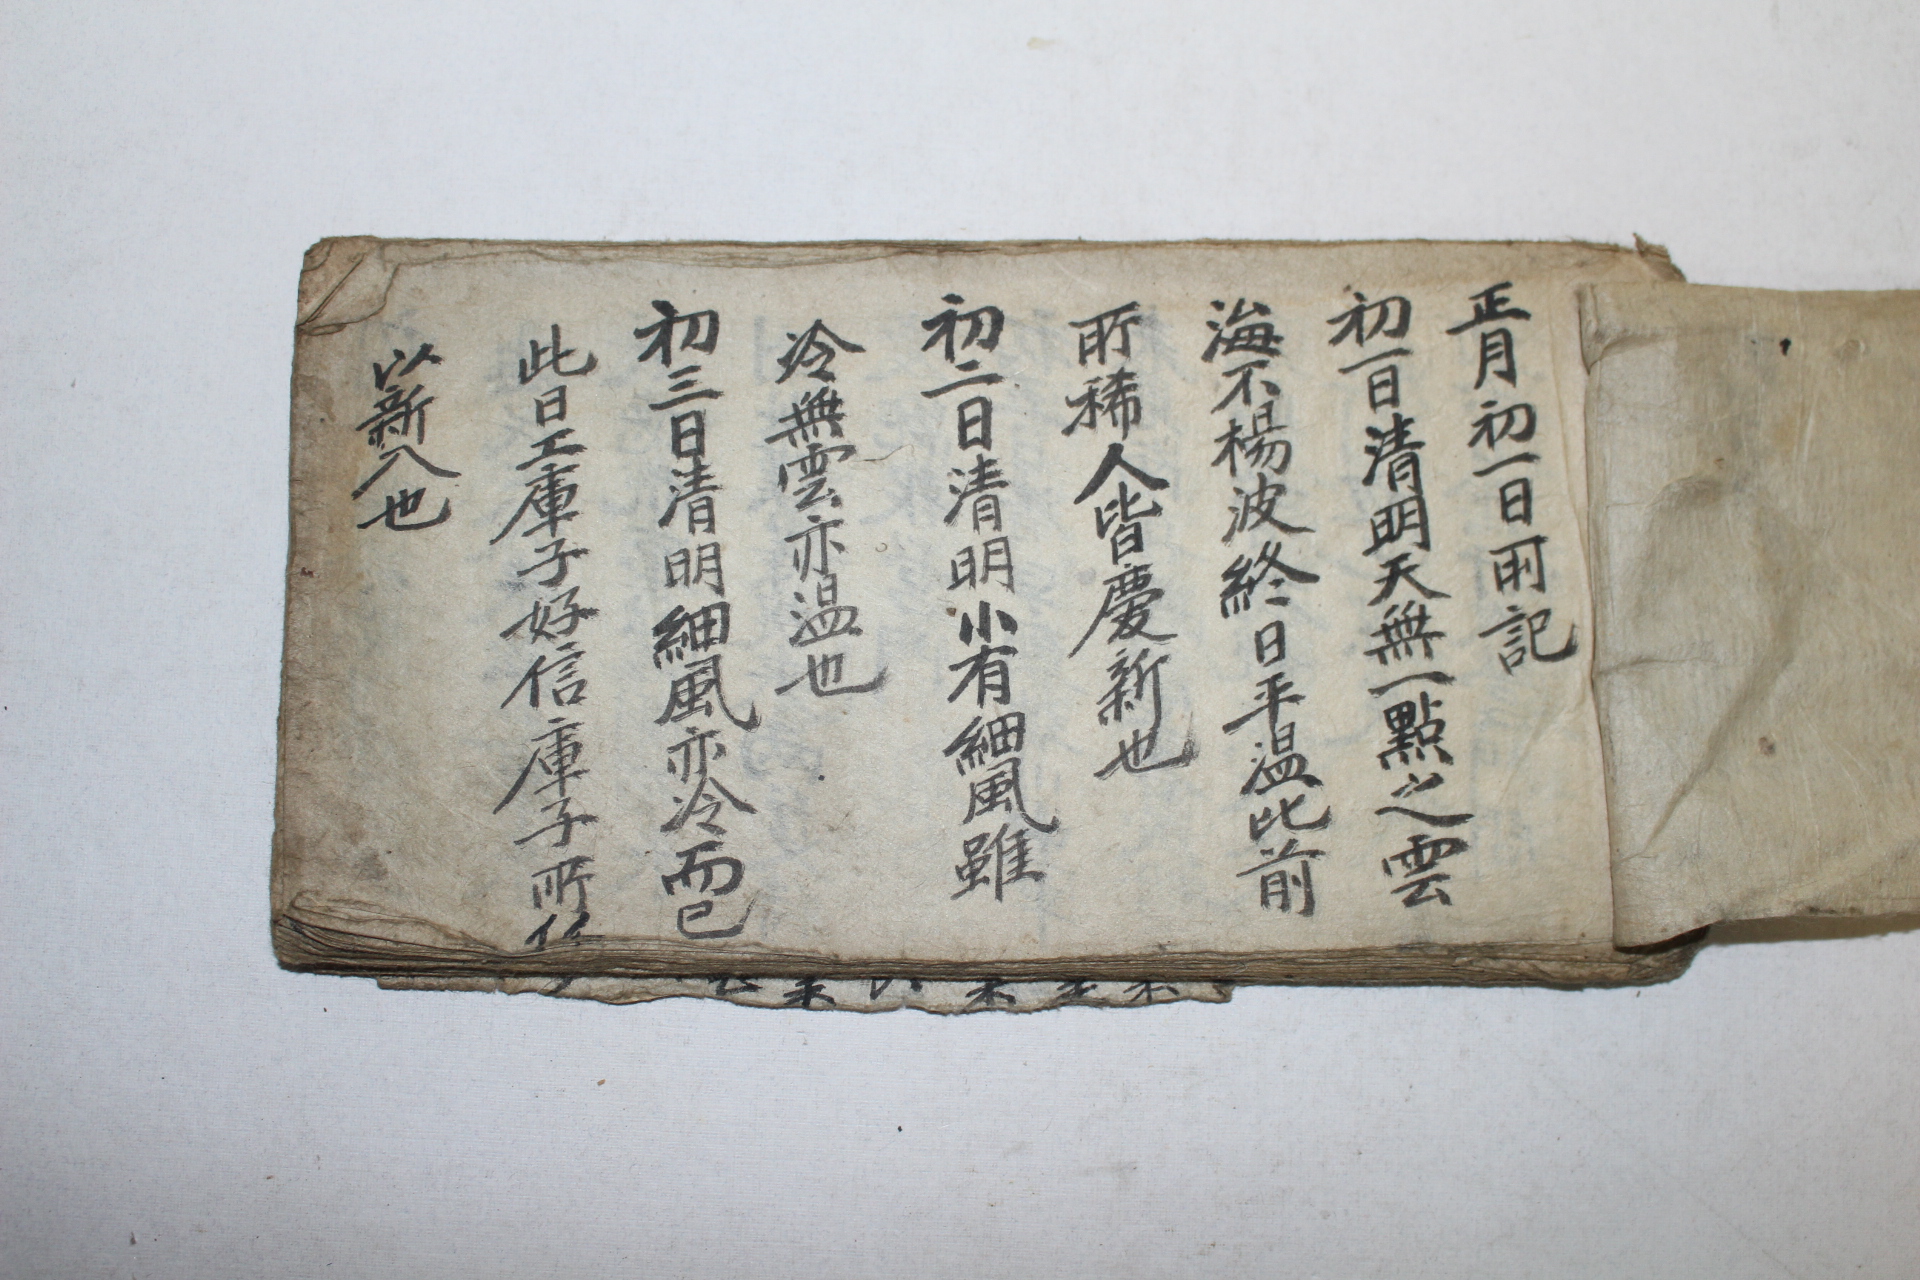 正月初一日所記
初一日清明天無一點之雲
海不楊波終日平溫比前
所稀人皆慶新也
初二日清明小有細風雖
冷無雲亦溫也
初三日清明細風亦冷而已
此日工庫子好信庫子所
以新入也